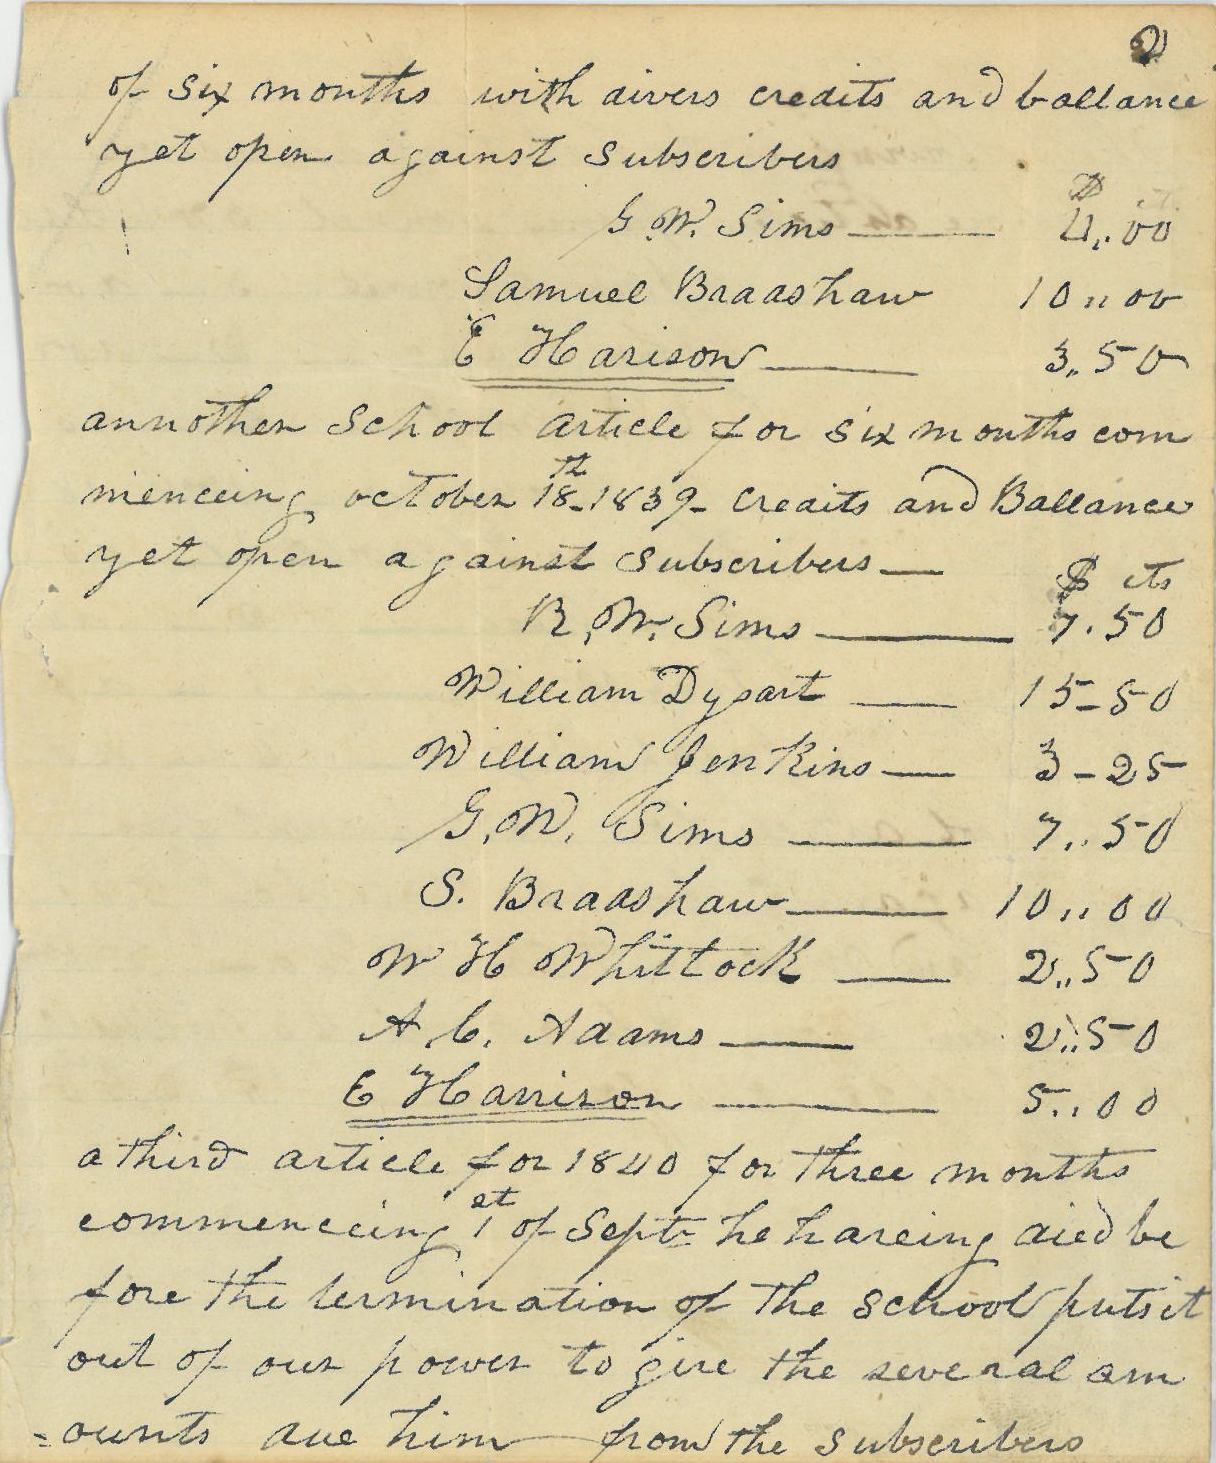 2
of six months with divers credits and ballance
yet open against subscribers
$
G. W. Sims 4,,00
Samuel Bradshaw 10,,00
E Harison 3,,50
annother School article for six months com
menceing october 18th 1839- Credits and Ballances
yet open against subscribers— $ cts
R. W. Sims 7.50
William Dysart 15-50
William Jenkins 3-25
G. W. Sims 7,,50
S. Bradshaw 10,,00
W H Whitlock 2,,50
A. C. Adams 2,,50
E Harrison 5,,00
a third article for 1840 for three months
commenceing 1st of Sept he haveing died be
fore the termination of the school puts it
out of our power to give the several am
=ounts due him from the subscribers